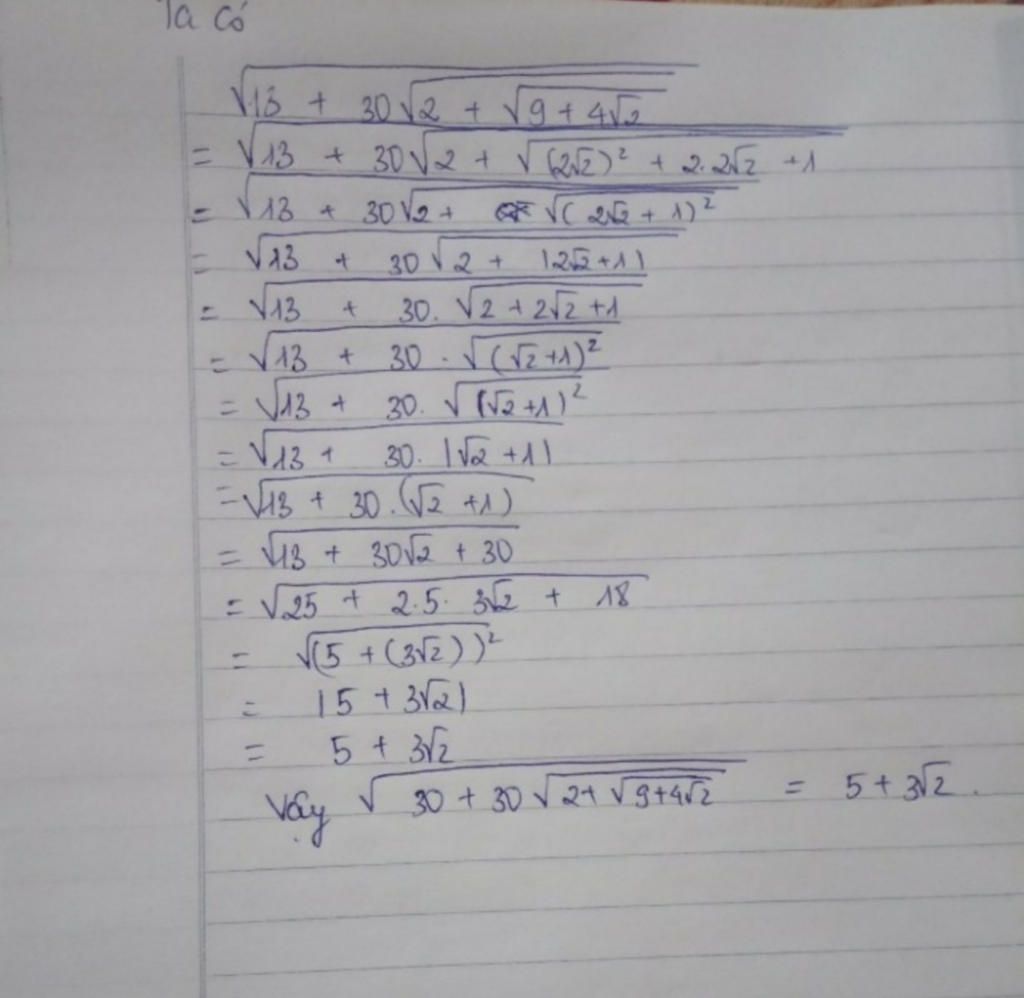 Ta có
√(13 + 30√(2 + √(9 + 4√2)))
= √(13 + 30√(2 + √((2√2)² + 2.2√2 + 1)))
= √(13 + 30√(2 + √((2√2 + 1)²)))
= √(13 + 30√(2 + |2√2 + 1|))
= √(13 + 30. √(2 + 2√2 + 1))
= √(13 + 30 . √((√2 + 1)²))
= √(13 + 30. √((√2 + 1)²))
= √(13 + 30. |√2 + 1|)
= √(13 + 30 .(√2 + 1))
= √(13 + 30√2 + 30)
= √(25 + 2.5. 3√2 + 18)
= √((5 + (3√2))²)
= |5 + 3√2|
= 5 + 3√2
Vậy √(30 + 30√(2 + √(9 + 4√2))) = 5 + 3√2.